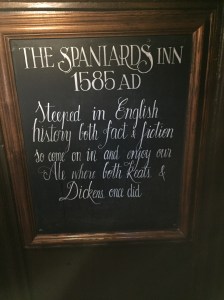 THE SPANIARDS INN
1585 AD
Steeped in English
history both fact & fiction
so come on in and enjoy our
Ale where both Keats &
Dickens once did.